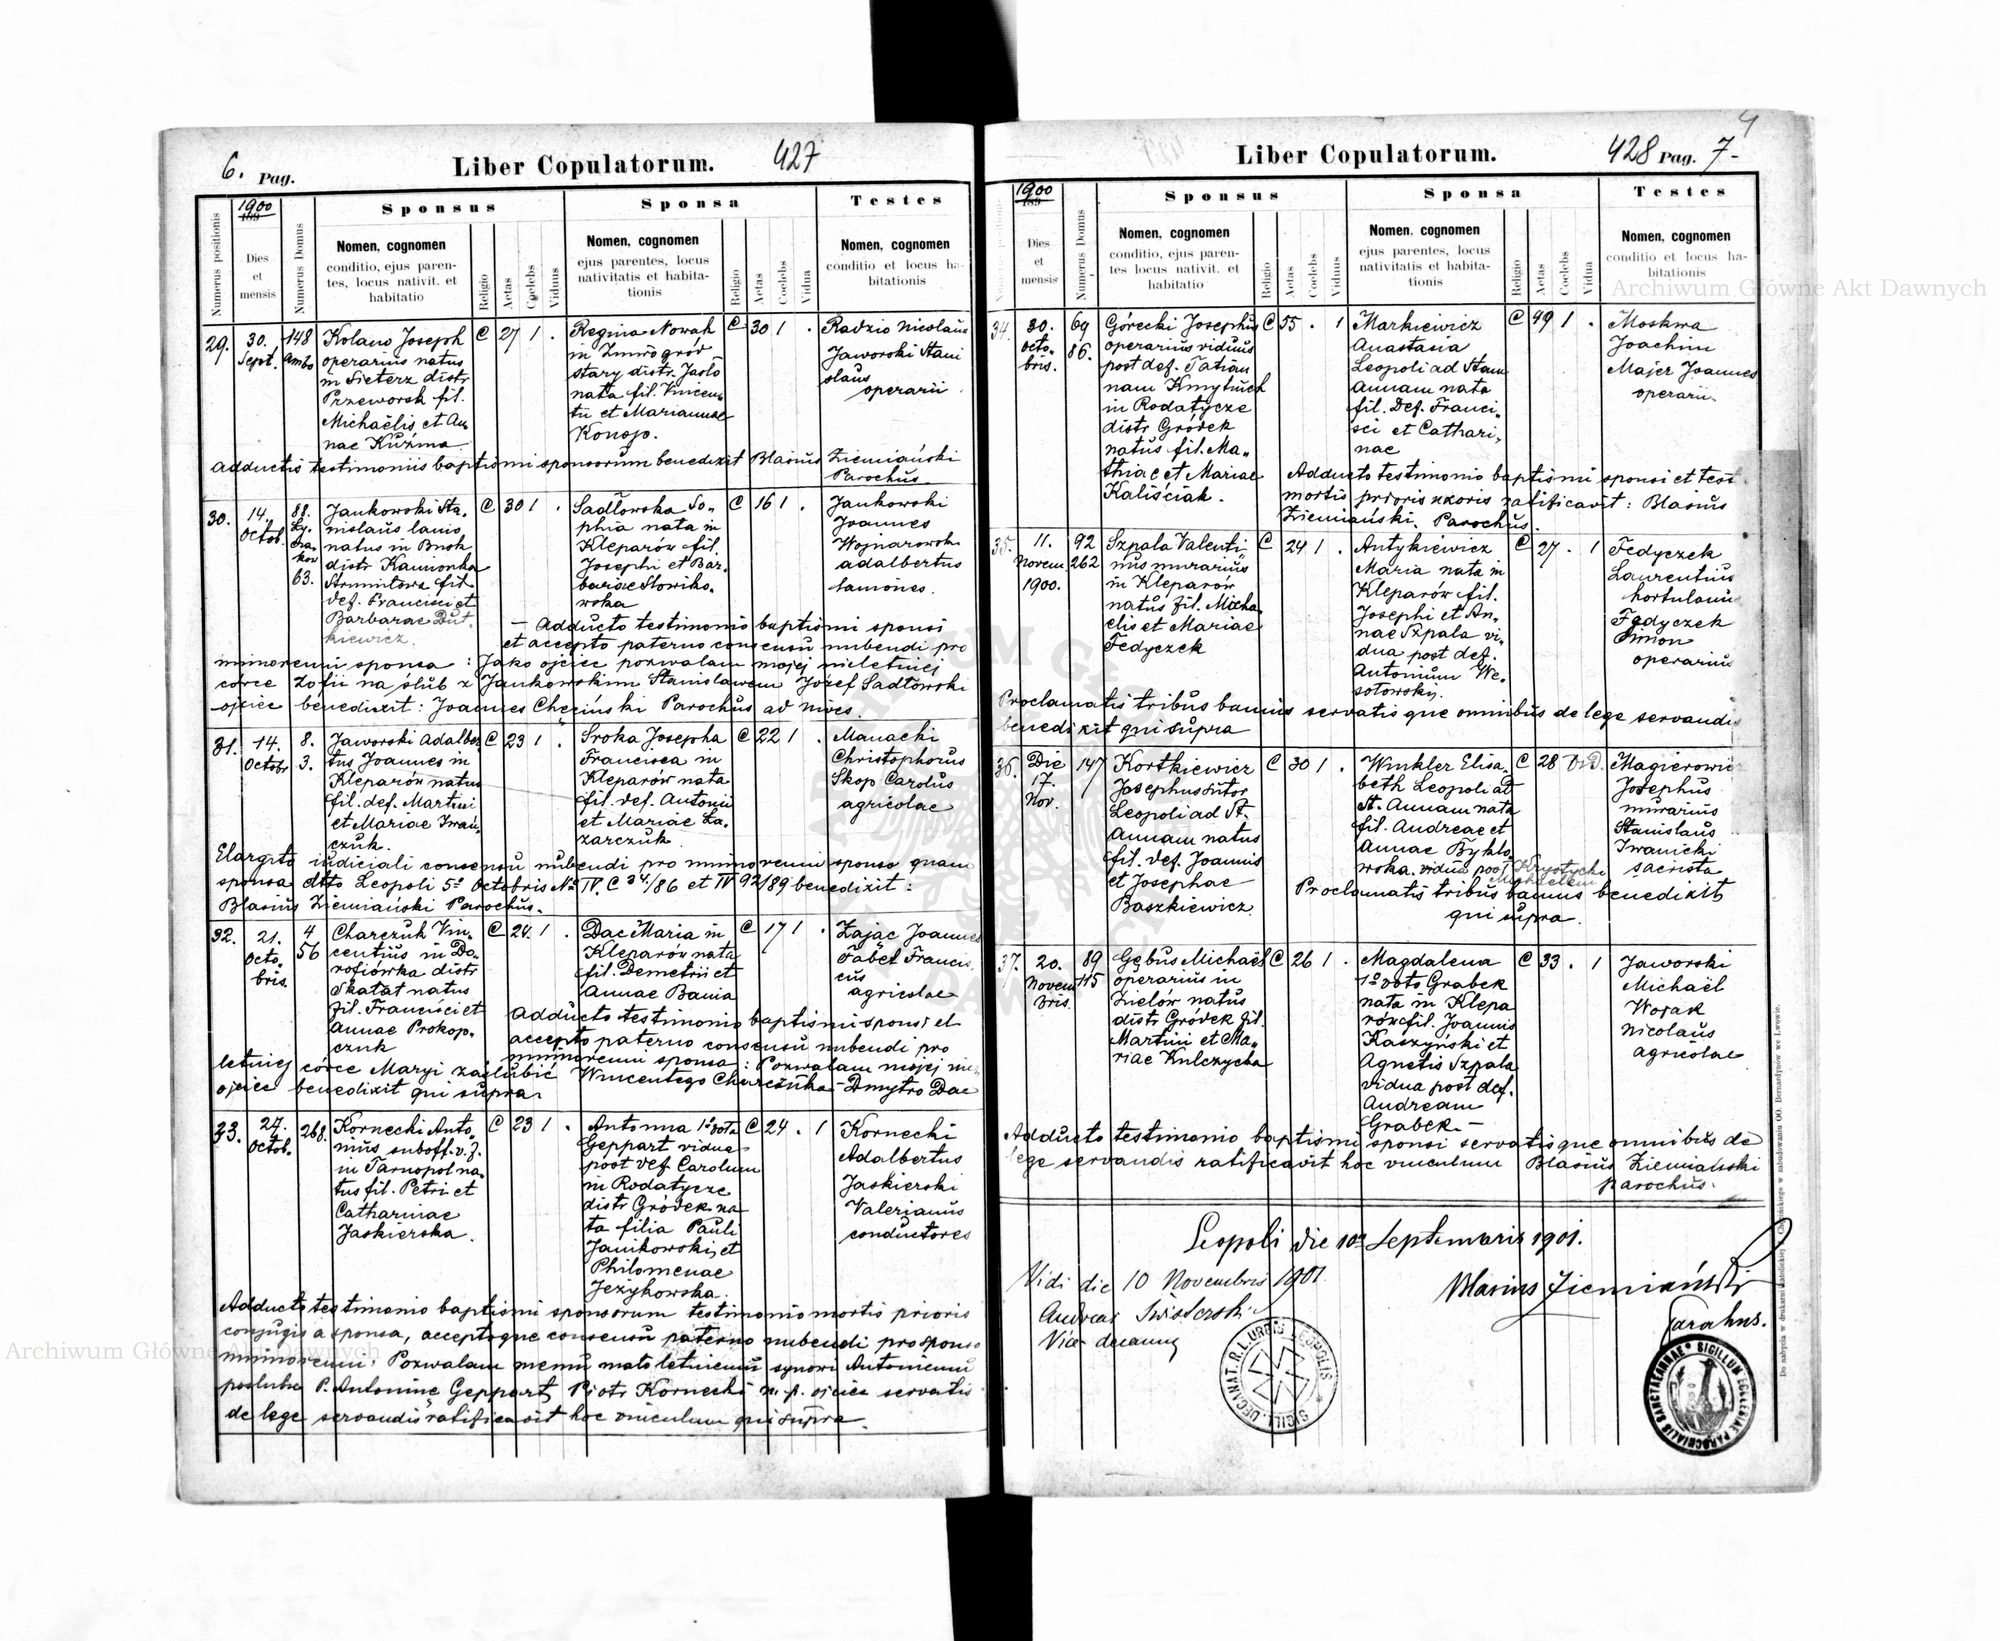 6. Pag.
Liber Copulatorum.
427
Numerus positionis
1900
189
Dies
et
mensis
Numerus Domus
Sponsus
Nomen, cognomen
conditio, ejus paren-
tes, locus nativit. et
habitatio
Religio
Aetas
Coelebs
Viduus
Sponsa
Nomen, cognomen
ejus parentes, locus
nativitatis et habita-
tionis
Religio
Aetas
Coelebs
Vidua
Testes
Nomen, cognomen
conditio et locus ha-
bitationis
29.
30.
Sept.
148
ambo
Kolano Joseph
operarius natus
in Sieterz distr
Przeworsk fil.
Michaëlis et An
nae Kuźma
C 27 1 .
Regina Nowak
in Zmiogród
stary distr. Jasło
nata fil. Vincen
tii et Mariannae
Konop.
C 30 1 .
Radzio Nicolaus
Jaworski Stani
slaus
operarii
adductis testimoniis baptismi sponsorum benedixit Blasius Ziemiański
Parochus
30.
14.
Octob.
88.
63.
Jankowski Sta-
nislaus lanio
natus in Busk
distr Kamionka
Strumiłowa fil
def. Francisci et
Barbarae Dut-
kiewicz.
C 30 1 .
Sadłowska So-
phia nata in
Kleparów fil.
Josephi et Bar-
barae Słowiko-
wska
C 16 1 .
Jankowski
Joannes
Wojnarowski
adalbertus
laniones.
- Adducto testimonio baptismi sponsi
et accepto paterno consensu nubendi pro
minorenni sponsa : Jako ojciec pozwalam mojej nieletniej
córce Zofii na ślub z Jankowskim Stanisławem Józef Sadłowski
ojciec benedixit : Joannes Chęciński Parochus ad nives.
31.
14.
Octobr
8.
3.
Jaworski Adalber
tus Joannes in
Kleparów natus
fil. def. Martini
et Mariae Iwań-
czuk.
C 23 1 .
Sroka Josepha
Francisca in
Kleparów nata
fil. def. Antonii
et Mariae Ła-
zarczuk.
C 22 1 .
Manacki
Christophorus
Skop Carolus
agricolae
Elargito iudiciali consensu nubendi pro minorenni sponso quam
sponsa dtto Leopoli 5ª Octobris No IV. C 34/86 et IV 92/89 benedixit :
Blasius Ziemiański Parochus.
32.
21.
Octo-
bris.
4
56
Charczuk Vin-
centius in Do-
rofiówka distr
Skałat natus
fil. Francisci et
Annae Prokop-
czuk
C 24. 1 .
Dac Maria in
Kleparów nata
fil. Demetrii et
Annae Bania
C 17 1 .
Zając Joannes
Fabel Francis
cus
agricolae
adducto testimonio baptismi sponsi et
accepto paterno consensu nubendi pro
minorenni sponsa : Pozwalam mojej nie-
letniej córce Maryi zaślubić Wincentego Charczuka - Dmytro Dac
ojciec benedixit qui supra.
33.
27.
Octob.
268.
Kornecki Anto-
nius suboff. v. z.
in Tarnopol na-
tus fil. Petri et
Catharinae
Jaskierska.
C 23 1 .
Antonina 1º voto
Geppart vidua
post def Carolum
in Rodatycze
distr Gródek na
ta filia Pauli
Janikowski et
Philomenae
Jeżykowska.
C 24 . 1
Kornecki
Adalbertus
Jaskierski
Valerianus
conductores
Adducto testimonio baptismi sponsorum testimonio mortis prioris
conjugis a sponsa, acceptoque consensu paterno nubendi pro sponso
minorenni : Pozwalam memu małoletniemu synowi Antoniemu
poślubić P. Antoninę Geppart, Piotr Kornecki m. p. ojciec servatis
de lege servandis ratificavit hoc vinculum qui supra.
4
Liber Copulatorum.
428 Pag. 7-
1900
189
Dies
et
mensis
Numerus Domus
Sponsus
Nomen, cognomen
conditio, ejus paren-
tes locus nativit. et
habitatio
Religio
Aetas
Coelebs
Viduus
Sponsa
Nomen, cognomen
ejus parentes, locus
nativitatis et habita-
tionis
Religio
Aetas
Coelebs
Vidua
Testes
Nomen, cognomen
conditio et locus ha-
bitationis
34.
30.
Octo-
bris.
69
86.
Górecki Josephus
operarius viduus
post def. Tatian
nam Kmytuch
in Rodatycze
distr Gródek
natus fil. Ma-
thiae et Mariae
Kaliściak.
C 55 . 1
Markiewicz
Anastasia
Leopoli ad Stam
annam nata
fil. Def. Franci-
sci et Cathari-
nae
C 49 1 .
Moskwa
Joachim
Majer Joannes
operarii.
Adducto testimonio baptismi sponsi et test
mortis prioris uxoris ratificavit : Blasius
Ziemiański. Parochus.
35.
11.
Novem
1900.
92
262
Szpala Valenti
nus murarius
in Kleparów
natus fil. Micha
elis et Mariae
Fedyczek
C 24 1 .
Antykiewicz
Maria nata in
Kleparów fil.
Josephi et An-
nae Szpala vi-
dua post def.
Antonium We-
sołowski.
C 27 . 1
Fedyczek
Laurentius
hortulanus
Fedyczek
Simon
operarius
Proclamatis tribus bannis servatisque omnibus de lege servandis
benedixit qui supra
36.
Die
17.
Nov.
147
Kortkiewicz
Josephus sutor
Leopoli ad St.
Annam natus
fil. def. Joannis
et Josephae
Baszkiewicz
C 30 1 .
Winkler Elisa-
beth Leopoli ad
St. Annam nata
fil. Andreae et
Annae Byklo-
wska. vidua post Krystych
Michaelem
C 28
Magierowicz
Josephus
murarius
Stanislaus
Iwanicki
sacrista
Proclamatis tribus bannis benedixit
qui supra.
37.
20.
Novem
bris.
89
115
Gębus Michaël
operarius in
Zielów natus
distr Gródek fil.
Martini et Ma-
riae Kulczycka
C 26 1 .
Magdalena
1º voto Grabek
nata in Klepa
rów fil. Joannis
Kaszyński et
Agnetis Szpala
vidua post def.
Andream
Grabek. -
C 33 . 1
Jaworski
Michaël
Worak
Nicolaus
agricolae
Adducto testimonio baptismi sponsi servatisque omnibus de
lege servandis ratificavit hoc vinculum Blasius Ziemiański
Parochus.
Leopoli die 10a Septembris 1901.
Vidi die 10 Novembris 1901.
Blasius Ziemiański
Parochus.
Andreas
Vice-decanus
SIGILL. DECANAT. R. L. URBIS LEOPOLIS
SIGILLUM ECCLESIAE PAROCHIALIS SANCTAE ANNAE
Archiwum Główne Akt Dawnych
Archiwum Główne Akt Dawnych